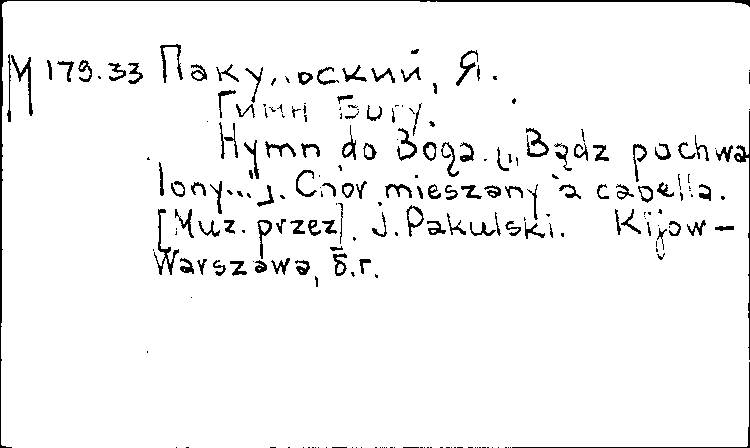 М 179.33 Пакульский, Я.
Гимн Богу.
Hymn do Boga. [„Bądz pochwa
lony..."]. Chór mieszany a capella.
[Muz. przez]. J. Pakulski. Kijow—
Warszawa, б.г.